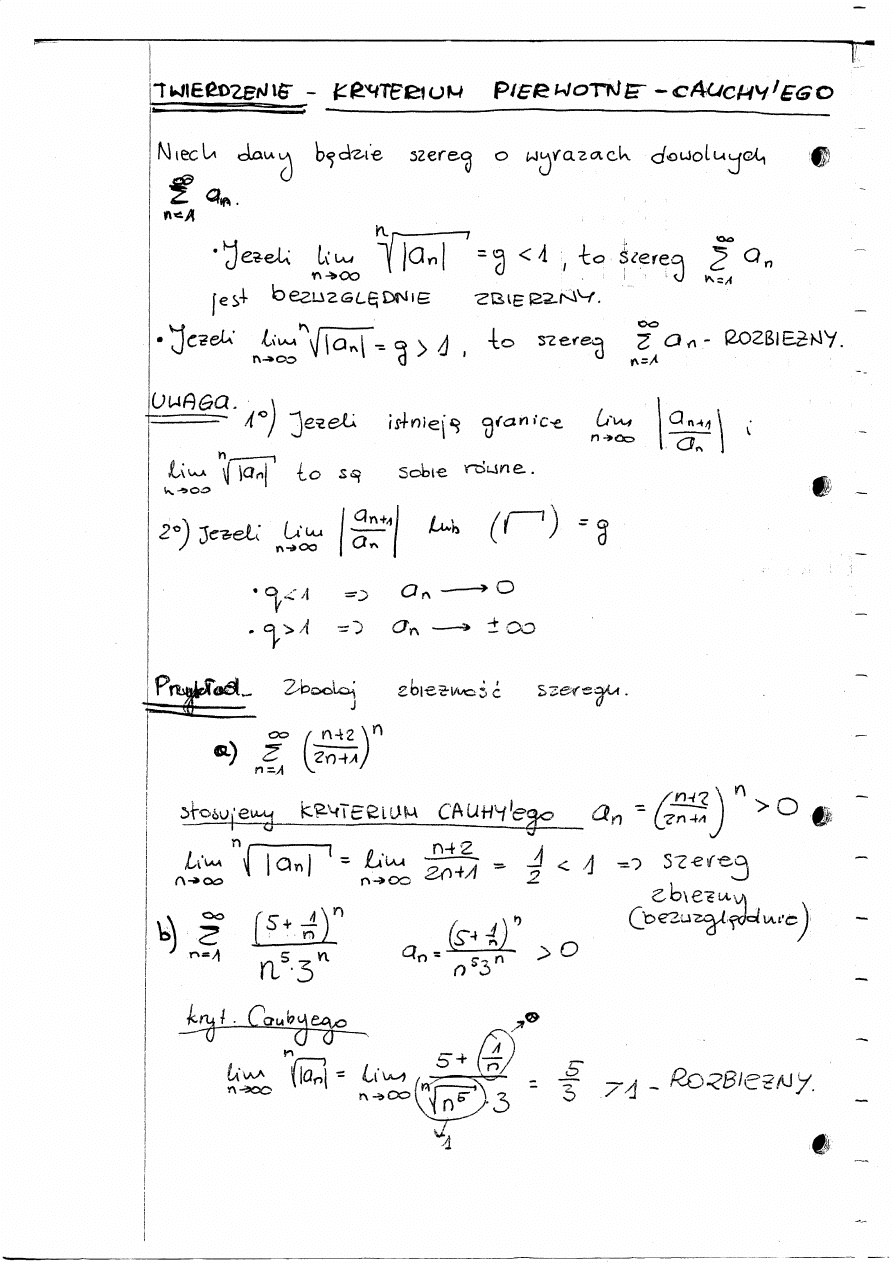 TWIERDZENIE - KRYTERIUM PIERWOTNE - CAUCHY'EGO
Niech dany będzie szereg o wyrazach dowolnych
∞∑n=1 an.
• Jezeli lim n→∞ ⁿ√|an| = g < 1, to szereg ∞∑n=1 an
jest BEZWZGLĘDNIE ZBIERZNY.
• Jezeli lim n→∞ ⁿ√|an| = g > 1, to szereg ∞∑n=1 an - ROZBIEZNY.
UWAGA. 1°) Jezeli istnieją granice lim n→∞ |an+1/an| i
lim n→∞ ⁿ√|an| to są sobie równe.
2°) Jezeli lim n→∞ |an+1/an| lub (√) = g
• q<1 => an → 0
• q>1 => an → ±∞
Przykład Zbadaj zbiezność szeregu.
a) ∞∑n=1 ((n+2)/(2n+1))ⁿ
stosujemy KRYTERIUM CAUHY'ego an = ((n+2)/(2n+1))ⁿ > 0
lim n→∞ ⁿ√|an| = lim n→∞ (n+2)/(2n+1) = 1/2 < 1 => szereg
zbiezny
(bezwzględnie)
b) ∞∑n=1 (5+1/n)ⁿ/(n⁵·3ⁿ) an = (5+1/n)ⁿ/(n⁵3ⁿ) > 0
kryt. Caubyego
lim n→∞ ⁿ√|an| = lim n→∞ (5+1/n)/(ⁿ√n⁵·3) = 5/3 >1 - ROZBIEZNY.
→0
→1